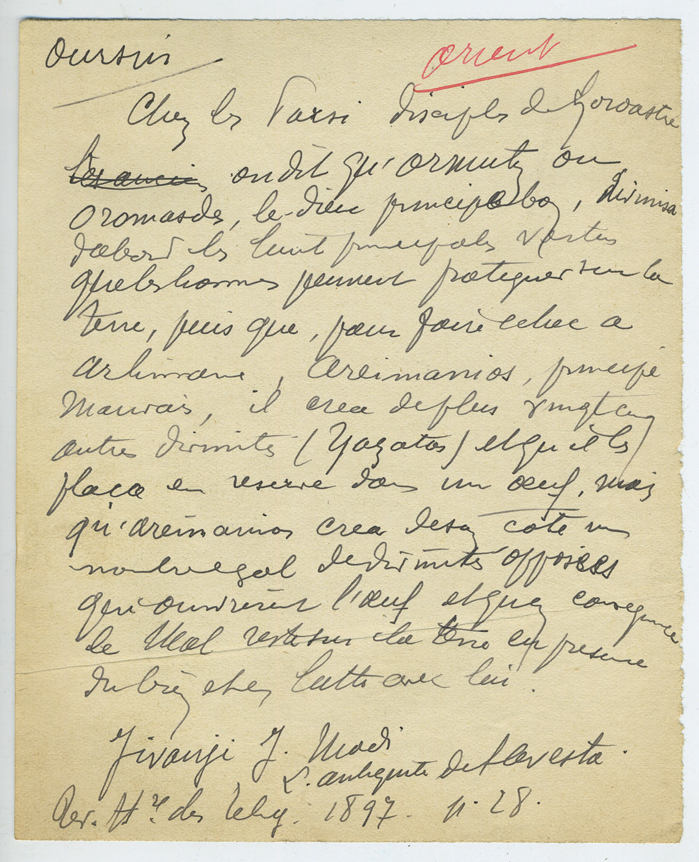 oursins
orient
Chez les Parsi disciples de Zoroastre
les anciens on dit qu'ormutz ou
oromasde, le dieu principe bon, divinisa
d'abord les huit principales vertus
que les hommes peuvent pratiquer sur la
terre, puis que, pour faire echec a
Arhimane, Areimanios, principe
Mauvais, il crea de plus vingt cinq
autres divinites (Yazatas) et qu'il les
plaça en reserve dans un œuf, mais
qu'areimanios crea de son coté un
nombre egal de divinités opposées
qui ouvrirent l'œuf et qu'en consequence
le Mal reste sur la terre en presence
du bien et en lutte avec lui.
Jivanji J. Modi
L'antiquite de l'avesta.
Rev. Hre des relig. 1897. p. 28.